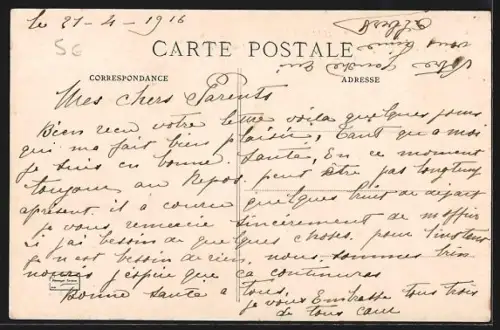 le 21-4-1916
56
CARTE POSTALE
CORRESPONDANCE
ADRESSE
Mes chers Parents
Bien recu votre lettre voila quelques jours
qui ma fait bien plaisir, Tant qu a moi
Je suis en bonne Santé, En ce moment
toujours au Repos. peut être pas longtemp
apresent. il a couru quelques bruit de départ
je vous remercie sincèrement de m offrir
si j'ai besoin de quelques choses. pour l'instant
je n est besoin de rien. nous sommes bien
nourris j'espère que ca continuera
Bonne Santé a tous,
je vous Embrasse tous trois
de tous cœur
Votre qui
vous aime
Albert